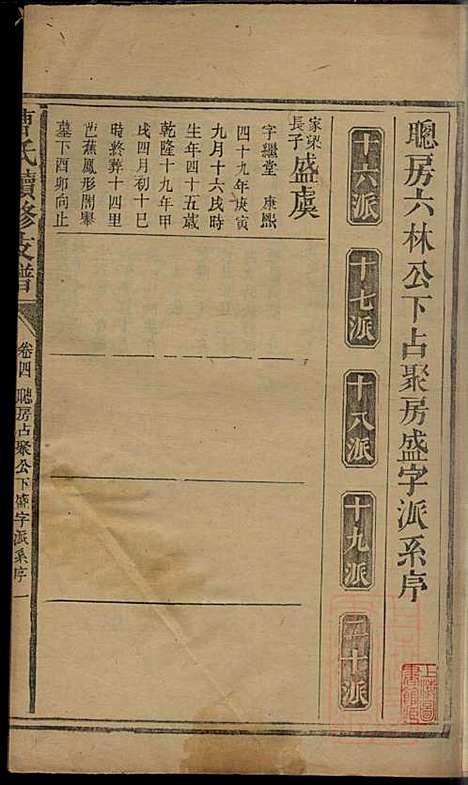 聰房六林公下占聚房盛字派系序
十六派
十七派
十八派
十九派
二十派
家望
長子
盛虞
字繼堂 康熙
四十九年庚寅
九月十六戌時
生年四十五歲
乾隆十九年甲
戌四月初十巳
時終葬十四里
芭蕉鳳形闇舉
墓下酉卯向止
曹氏續修支譜
卷四
聰房占聚公下盛字派系序
一
上海圖
書館藏